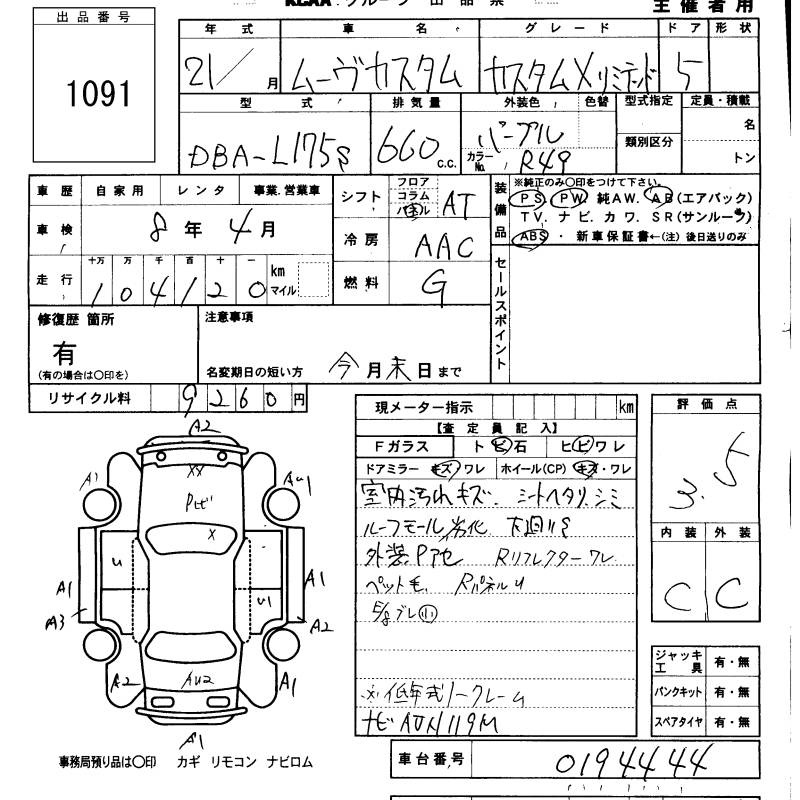 出品番号
1091
主催者用
年式 車名 グレード ドア 形状
21/ 月 ムーヴカスタム カスタムXリミテッド 5
型式 排気量 外装色 色替 型式指定 定員・積載
DBA-L175S 660 c.c. パープル カラーNo. R49 類別区分 名 トン
車歴 自家用 レンタ 事業.営業車
車検 8年4月
走行 十万 万 千 百 十 一 km マイル
104120
シフト フロア コラム パネル AT
冷房 AAC
燃料 G
装備品 ※純正のみ〇印をつけて下さい。
PS. PW. 純AW. AB(エアバック)
TV. ナビ. カワ. SR(サンルーフ)
ABS ・ 新車保証書←(注) 後日送りのみ
セールスポイント
修復歴 箇所
有
(有の場合は〇印を)
注意事項
名変期日の短い方 今月末日まで
リサイクル料 9260円
現メーター指示 km
【査定員記入】
Fガラス トビ石 ヒビワレ
ドアミラー キズ・ワレ ホイール(CP) キズ・ワレ
室内汚れキズ. シートヘタリ.シミ
ルーフモール劣化 下廻りS
外装Pアセ Rリフレクターワレ
ペット毛 RパネルU
E/gブレ小
※低年式ノークレーム
ナビAON119M
評価点
3.5
内装 外装
C C
ジャッキ工具 有・無
パンクキット 有・無
スペアタイヤ 有・無
A2
A1 XX AU1
Pヒビ
X
U
A1 U1 A1
A3 A2
A2 AU2 A1
A1
事務局預り品は〇印 カギ リモコン ナビロム
車台番号 0194444